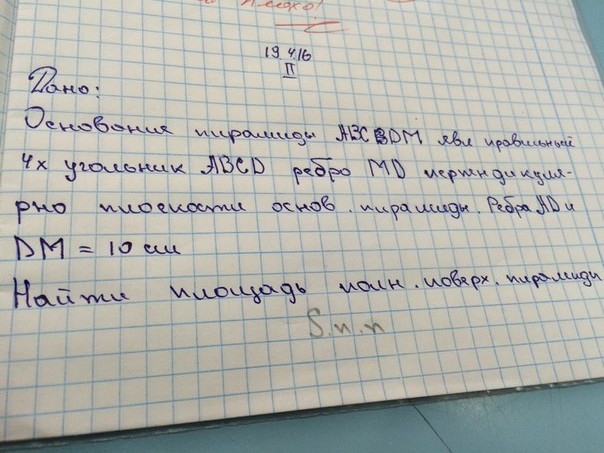 плохо!
19 4.16
II
Дано:
Основания пирамиды ABCBDM явл правильный
4х угольник ABCD ребро MD перпндикуля-
рно плоскости основ. пирамиды. Ребра AD и
DM = 10 см
Найти площадь полн. поверх. пирамиды
S.п.п